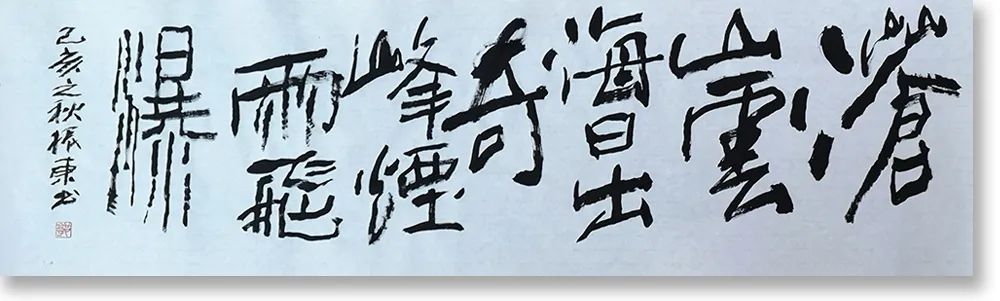 滄
山雲
海日出
奇
峰煙
雨飛
瀑
己亥之秋振東书